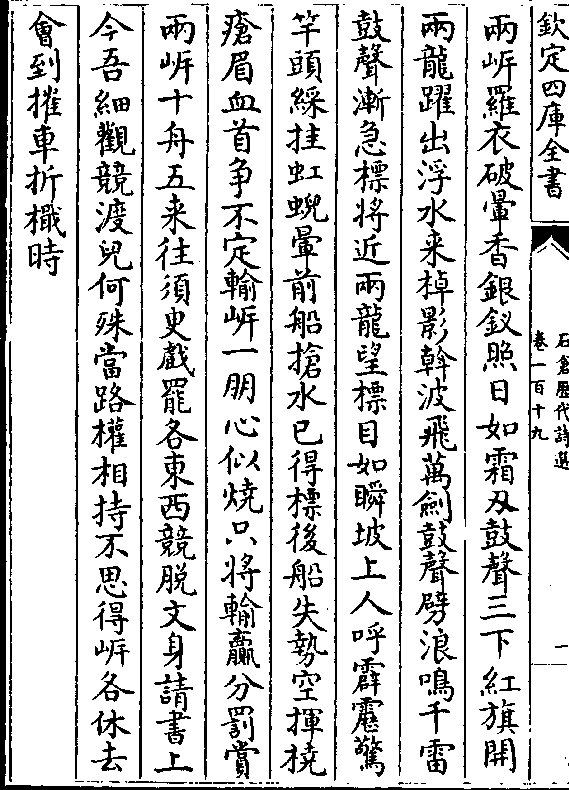 欽定四庫全書
石倉歷代詩選
卷一百十九
一
兩岸羅衣破暈香銀釵照日如霜刄鼓聲三下紅旗開
兩龍躍出浮水来棹影斡波飛萬劍鼓聲劈浪鳴千雷
鼓聲漸急標將近兩龍望標目如瞬坡上人呼霹靂驚
竿頭綵挂虹蜺暈前船搶水已得標後船失勢空揮橈
瘡眉血首争不定輸岸一朋心似燒只將輸贏分罰賞
兩岸十舟五来往須臾戲罷各東西競脫文身請書上
今吾細觀競渡兒何殊當路權相持不思得岸各休去
會到摧車折檝時